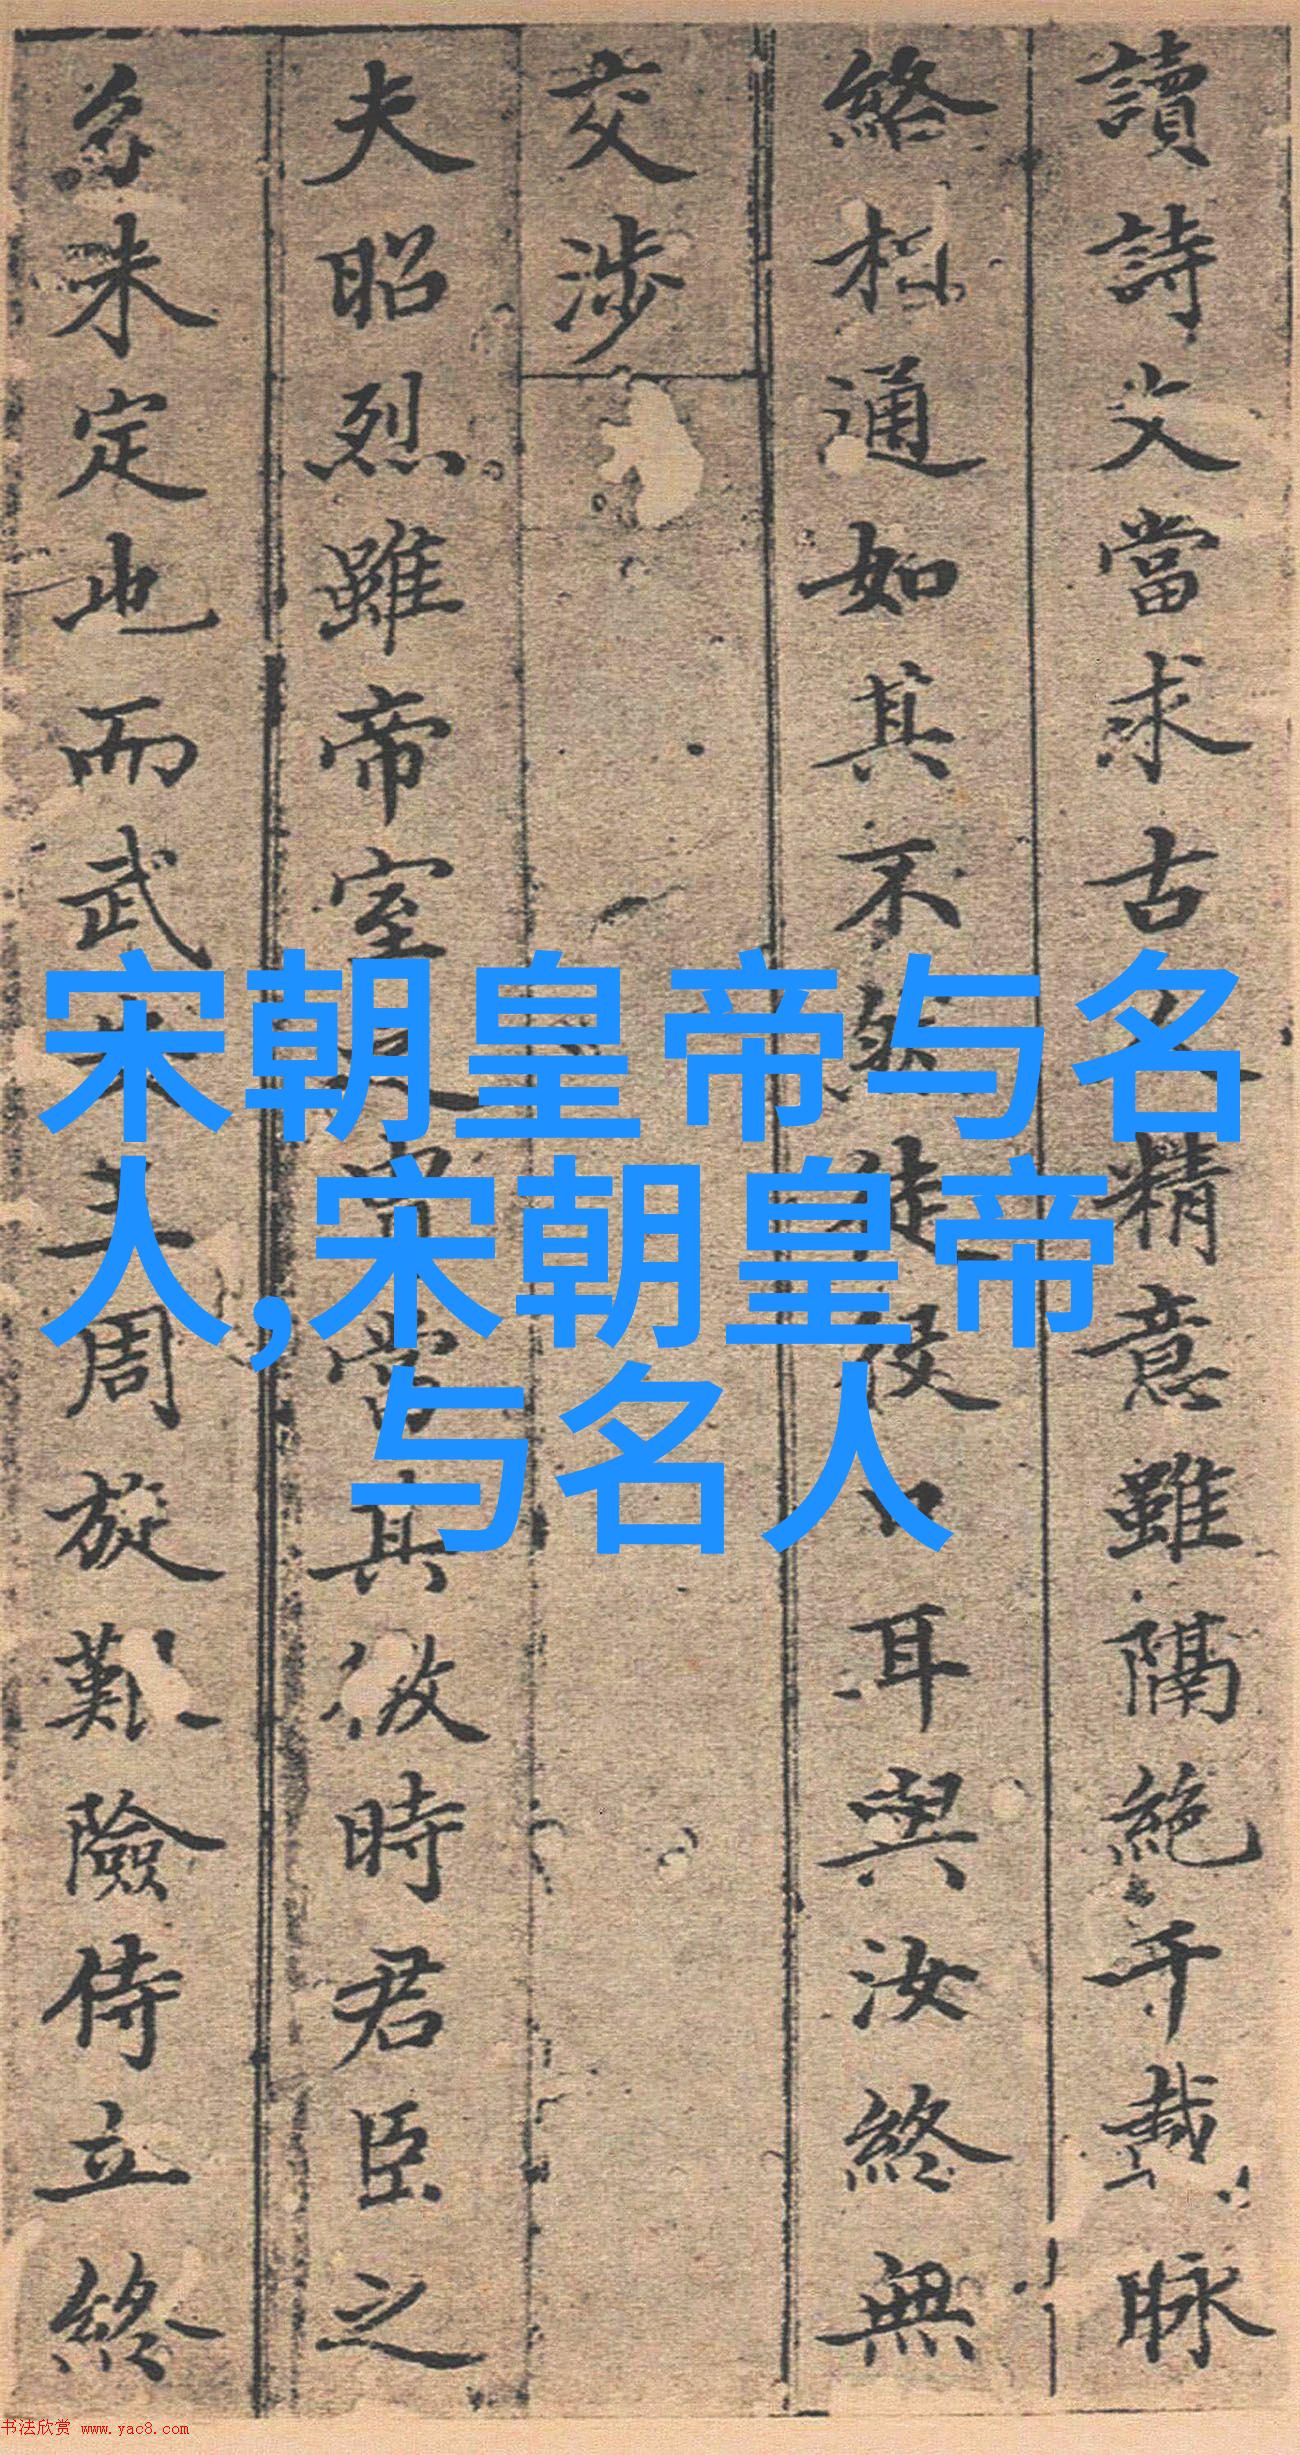 讀詩文當求古人精意雖隔絶千載脉
絡相通如其不然徒口耳與汝終無
交涉
夫昭烈雖帝室之當其時君臣之
未定也而武王周旋艱險侍立終
宋朝皇帝与名
人,宋朝皇帝
与名人
书法欣赏 www.yac8.com